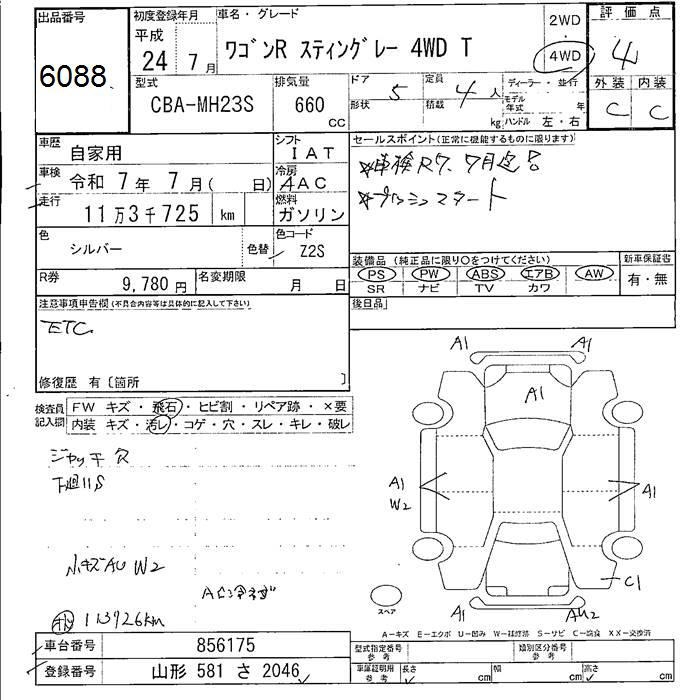 出品番号
6088
初度登録年月
平成
24年 7月
車名・グレード
ワゴンR スティングレー 4WD T
2WD
・
4WD
評価点
4
外装 内装
C C
型式
CBA-MH23S
排気量
660
cc
ドア 5
形状
定員 4人
積載 kg
ディーラー・並行
モデル年式 年
ハンドル 左・右
車歴
自家用
シフト
IAT
車検
令和 7年 7月( 日)
冷房
AAC
走行
11万3千725 km
燃料
ガソリン
色
シルバー
色替
色コード
Z2S
R券
9,780円
名変期限
月 日
セールスポイント(正常に機能するものに限ります)
☆車検R7.7月迄!
☆プッシュスタート
装備品 (純正品に限り○をつけてください)
PS PW ABS エアB AW
SR ナビ TV カワ
新車保証書
有・無
後日品
注意事項申告欄(不具合内容等は具体的に記入して下さい)
ETC
修復歴 有〔箇所 〕
検査員記入欄
FW キズ・飛石・ヒビ割・リペア跡・×要
内装 キズ・汚レ・コゲ・穴・スレ・キレ・破レ
ジャッキ欠
下廻りS
小キズAU W2
113926km
A1 A1
A1
A1
W2
A1
C1
A1 AU2
スペア
A-キズ E-エクボ U-凹み W-補修跡 S-サビ C-腐食 XX-交換済
車台番号
856175
登録番号
山形 581 さ 2046
型式指定番号
参考
類別区分番号
参考
車庫証明用
参考
長さ cm
幅 cm
高さ cm